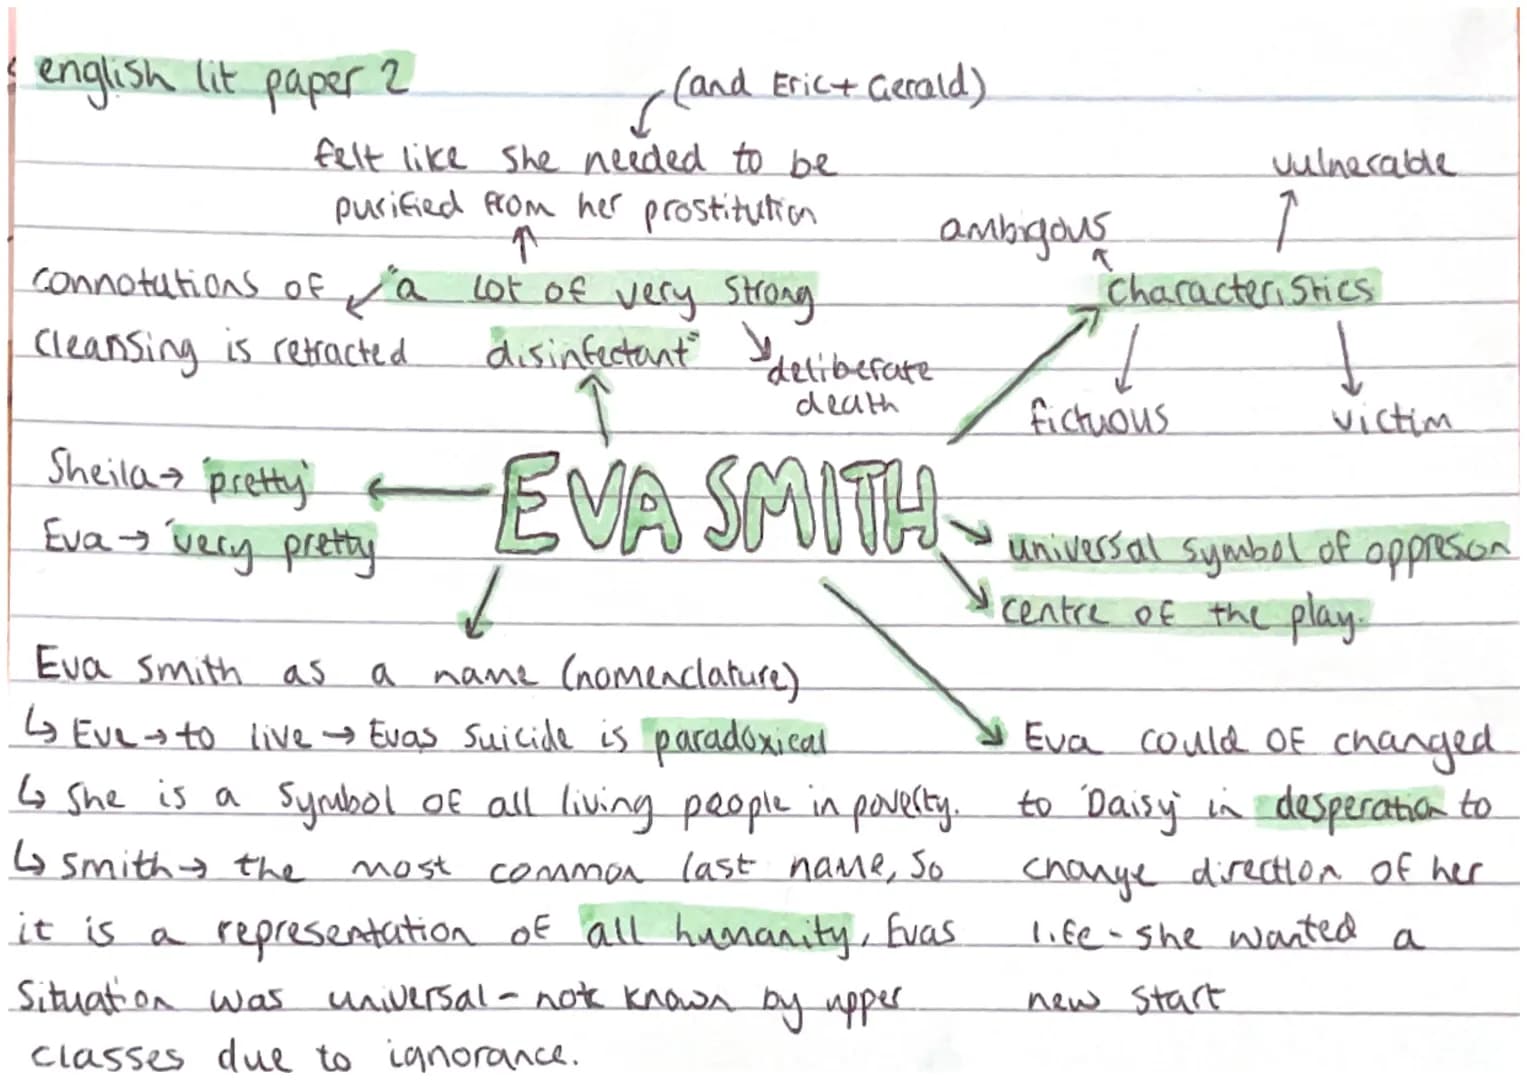 english lit paper 2
(and Eric + Gerald)
felt like she needed to be
purified from her prostitution
vulnerable
ambigous
connotations of
"a lot of very strong
characteristics
cleansing is retracted
disinfectant"
deliberate
death
fictuous
victim
Sheila → 'pretty'
EVA SMITH
Eva → 'very pretty
universal symbol of oppreson
centre of the play.
Eva Smith as a name (nomenclature)
↳ Eve → to live → Evas suicide is paradoxical
↳ She is a symbol of all living people in poverty.
↳ Smith → the most common last name, so
it is a representation of all humanity, Evas
situation was universal - not known by upper
classes due to ignorance.
Eva could of changed
to 'Daisy' in desperation to
change direction of her
life - she wanted a
new start